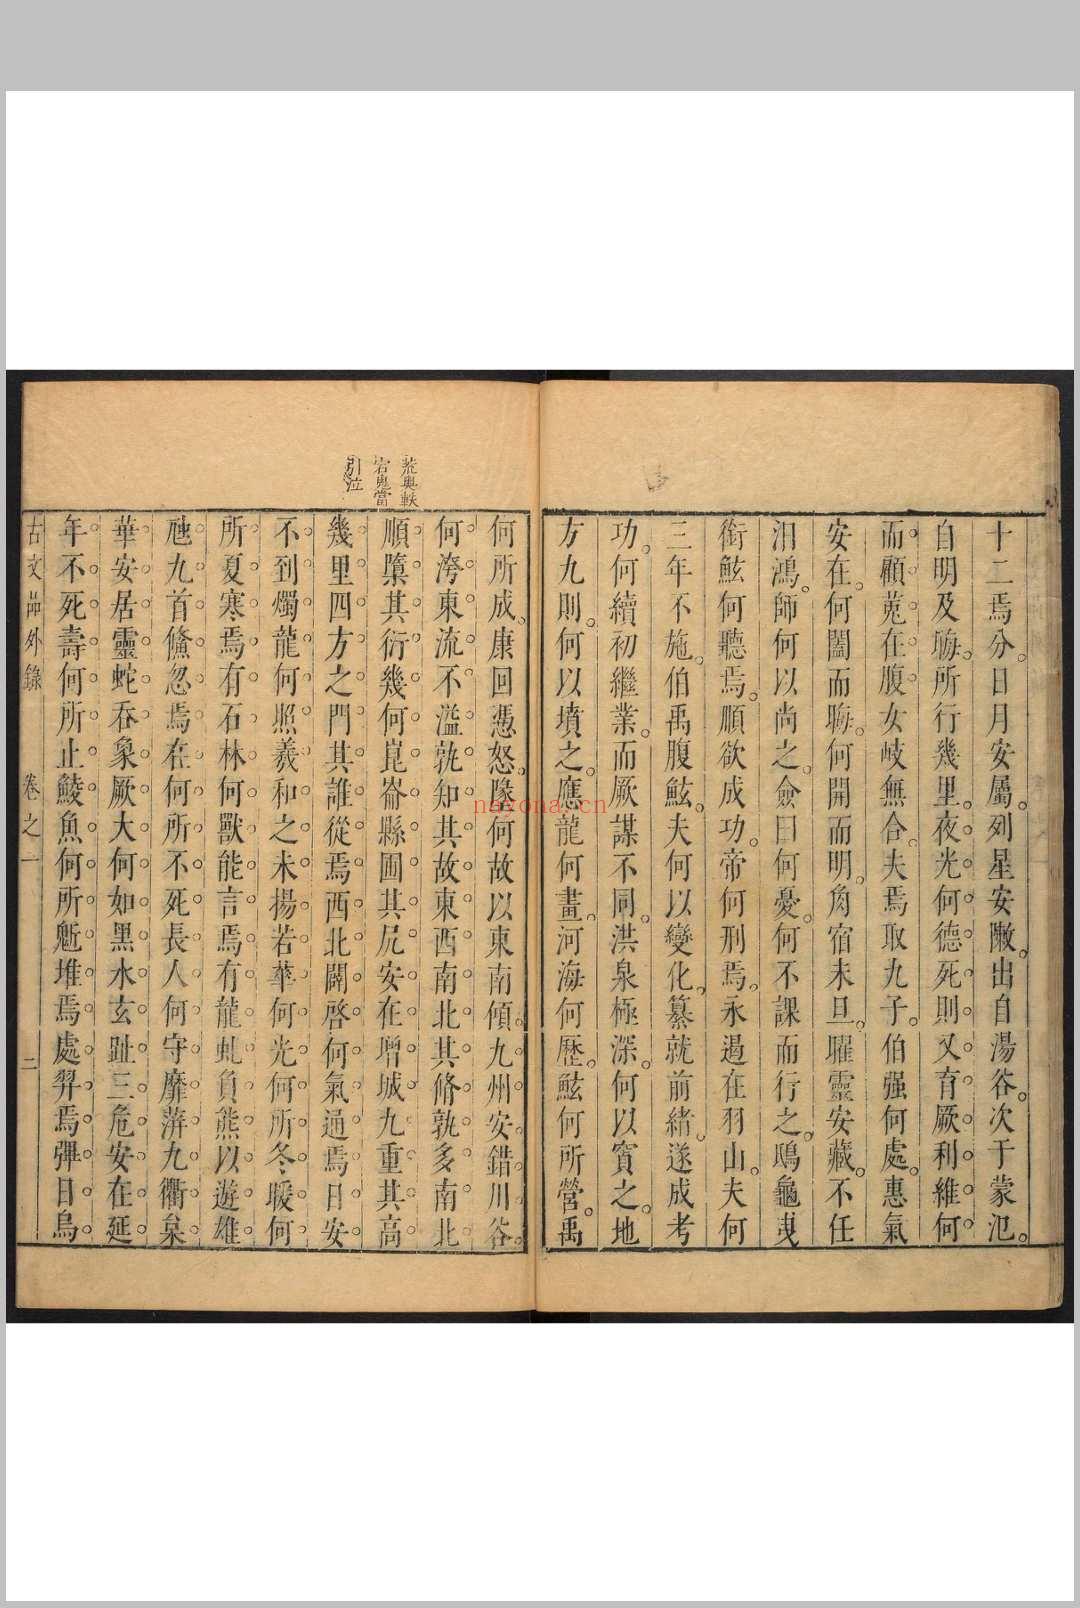 十二焉分。日月安屬。列星安敶。出自湯谷。次于蒙氾。
自明及晦。所行幾里。夜光何德。死則又育。厥利維何。
而顧菟在腹。女岐無合。夫焉取九子。伯强何處。惠氣
安在。何闔而晦。何開而明。角宿未旦。曜靈安藏。不任
汨鴻。師何以尚之。僉曰何憂。何不課而行之。鴟龜曳
銜鮌何聽焉。順欲成功。帝何刑焉。永遏在羽山。夫何
三年不施。伯禹腹鮌。夫何以變化。纂就前緒。遂成考
功。何續初繼業。而厥謀不同。洪泉極深。何以窴之。地
方九則。何以墳之。應龍何畫。河海何歷。鮌何所營。禹
何所成。康回憑怒。墬何故以東南傾。九州安錯。川谷
何洿。東流不溢。孰知其故。東西南北。其脩孰多。南北
順隳。其衍幾何。崑崙縣圃。其尻安在。增城九重。其高
幾里。四方之門。其誰從焉。西北闢啓。何氣通焉。日安
不到。燭龍何照。羲和之未揚。若華何光。何所冬暖。何
所夏寒。焉有石林。何獸能言。焉有龍虬。負熊以遊。雄
虺九首。儵忽焉在。何所不死。長人何守。靡蓱九衢。枲
華安居。靈蛇吞象。厥大何如。黑水玄趾。三危安在。延
年不死。壽何所止。鯪魚何所。鬿堆焉處。羿焉彈日。烏
荒輿軼
宕鬼當
引泣
古文品外錄
卷之一
二
nayona.cn